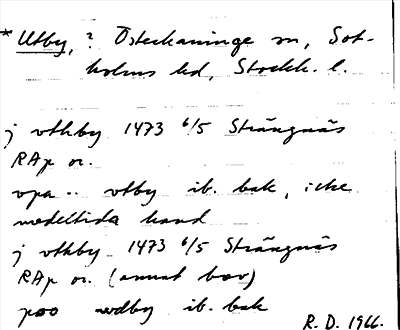 *Utby, ? Österhaninge sn, Sot-
holms hd, Stockh. l.
j vthby 1473 6/5 Strängnäs
RAp or.
vpa .. vtby ib. bak, icke
medeltida hand
j vthby 1473 6/5 Strängnäs
RAp or. (annat brev)
poo wdby ib. bak
R. D. 1966.